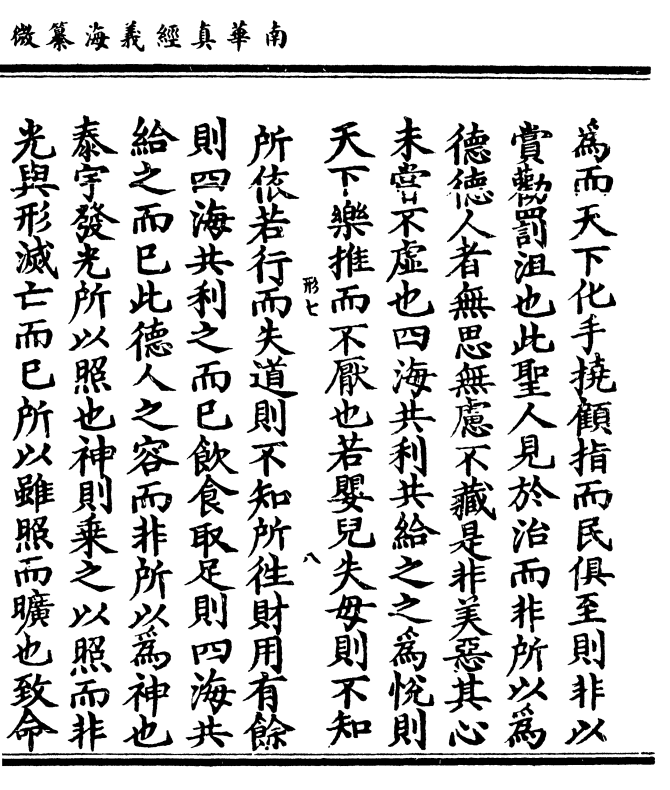 南華真經義海纂微
爲而天下化手撓顧指而民俱至則非以
賞勸罰沮也此聖人見於治而非所以爲
德德人者無思無慮不藏是非美惡其心
未嘗不虛也四海共利共給之之爲悅則
天下樂推而不厭也若嬰兒失母則不知
形七
八
所依若行而失道則不知所往財用有餘
則四海共利之而已飲食取足則四海共
給之而已此德人之容而非所以爲神也
泰宇發光所以照也神則乗之以照而非
光與形滅亡而已所以雖照而曠也致命